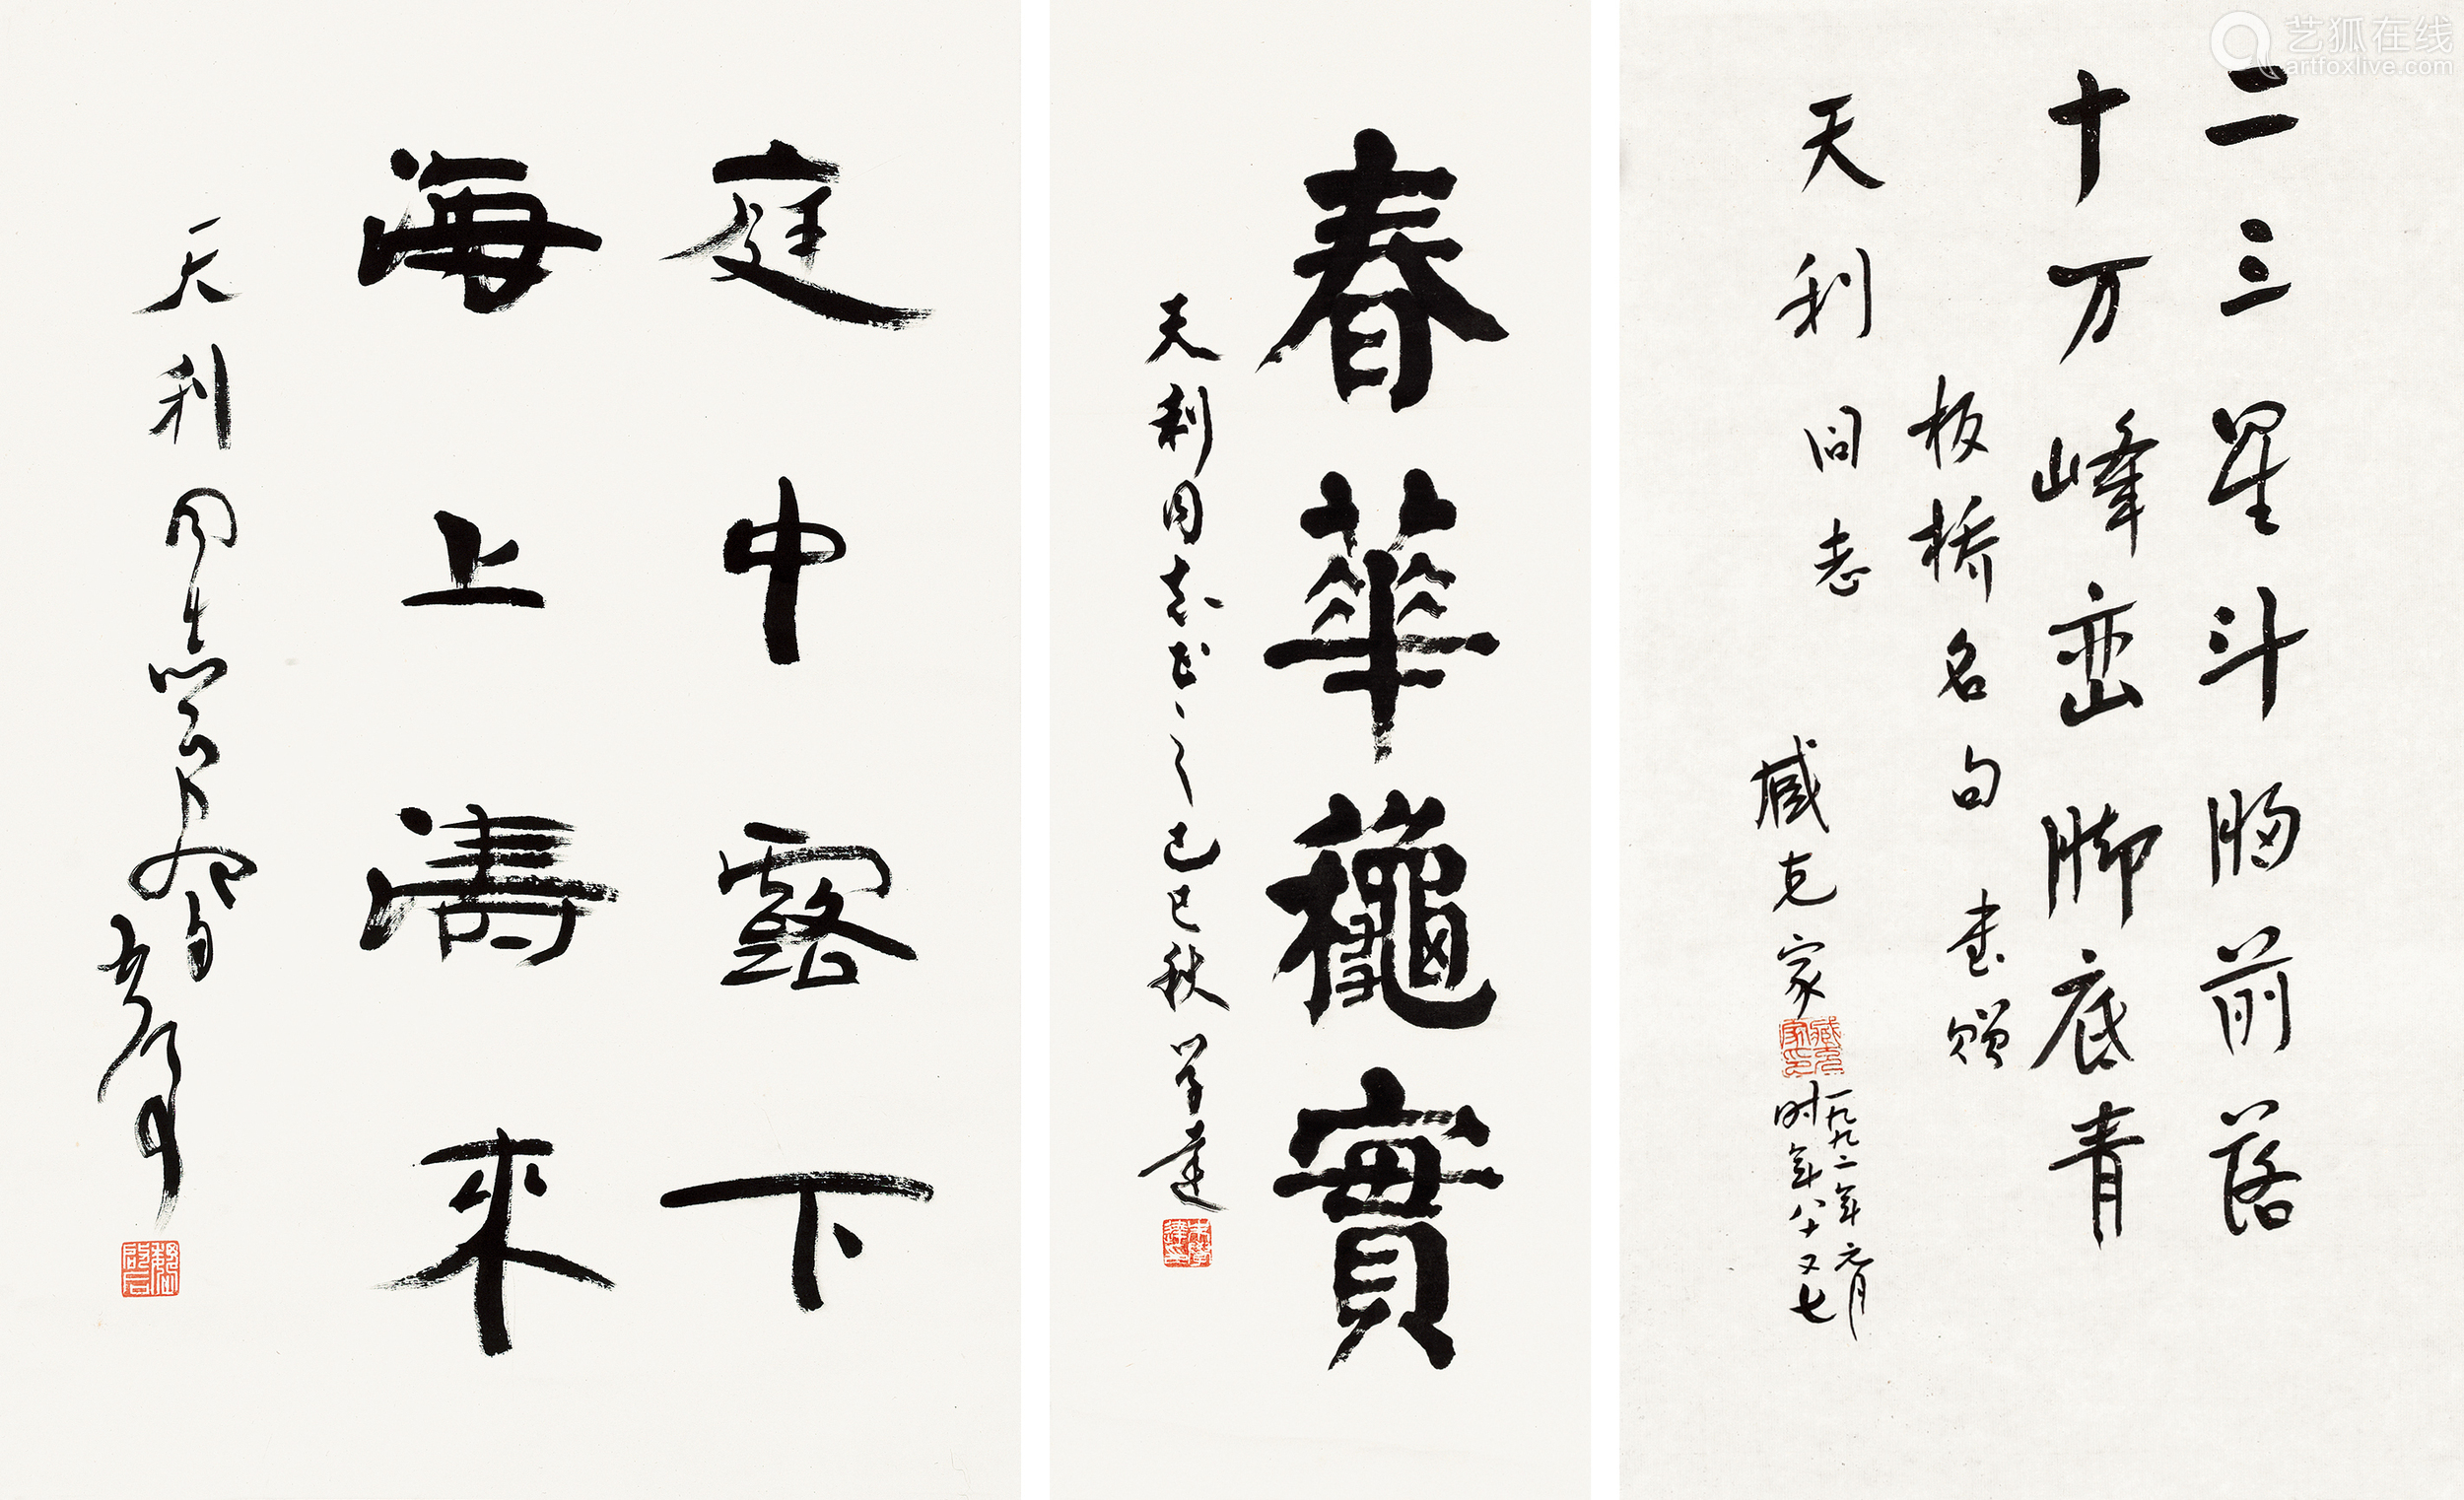 二三星斗胸前落
十万峰峦脚底青
板桥名句 书赠
天利同志
臧克家
一九九二年元月
时年八十又七
臧克家印
春華龝實
天利同志正之 己巳秋 学达
庭中露下
海上濤來
天利同志
魏啟后
艺狐在线
artfoxlive.com